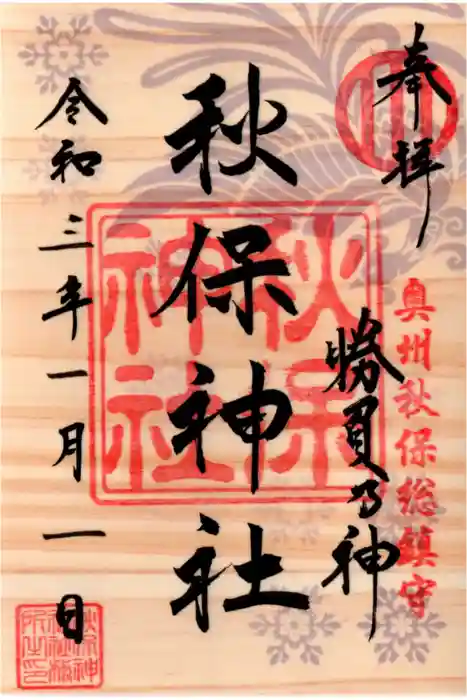 奉拝
奥州秋保総鎮守
勝負乃神
秋保神社
秋保
神社
令和三年一月一日
秋保神
社社務
所之印